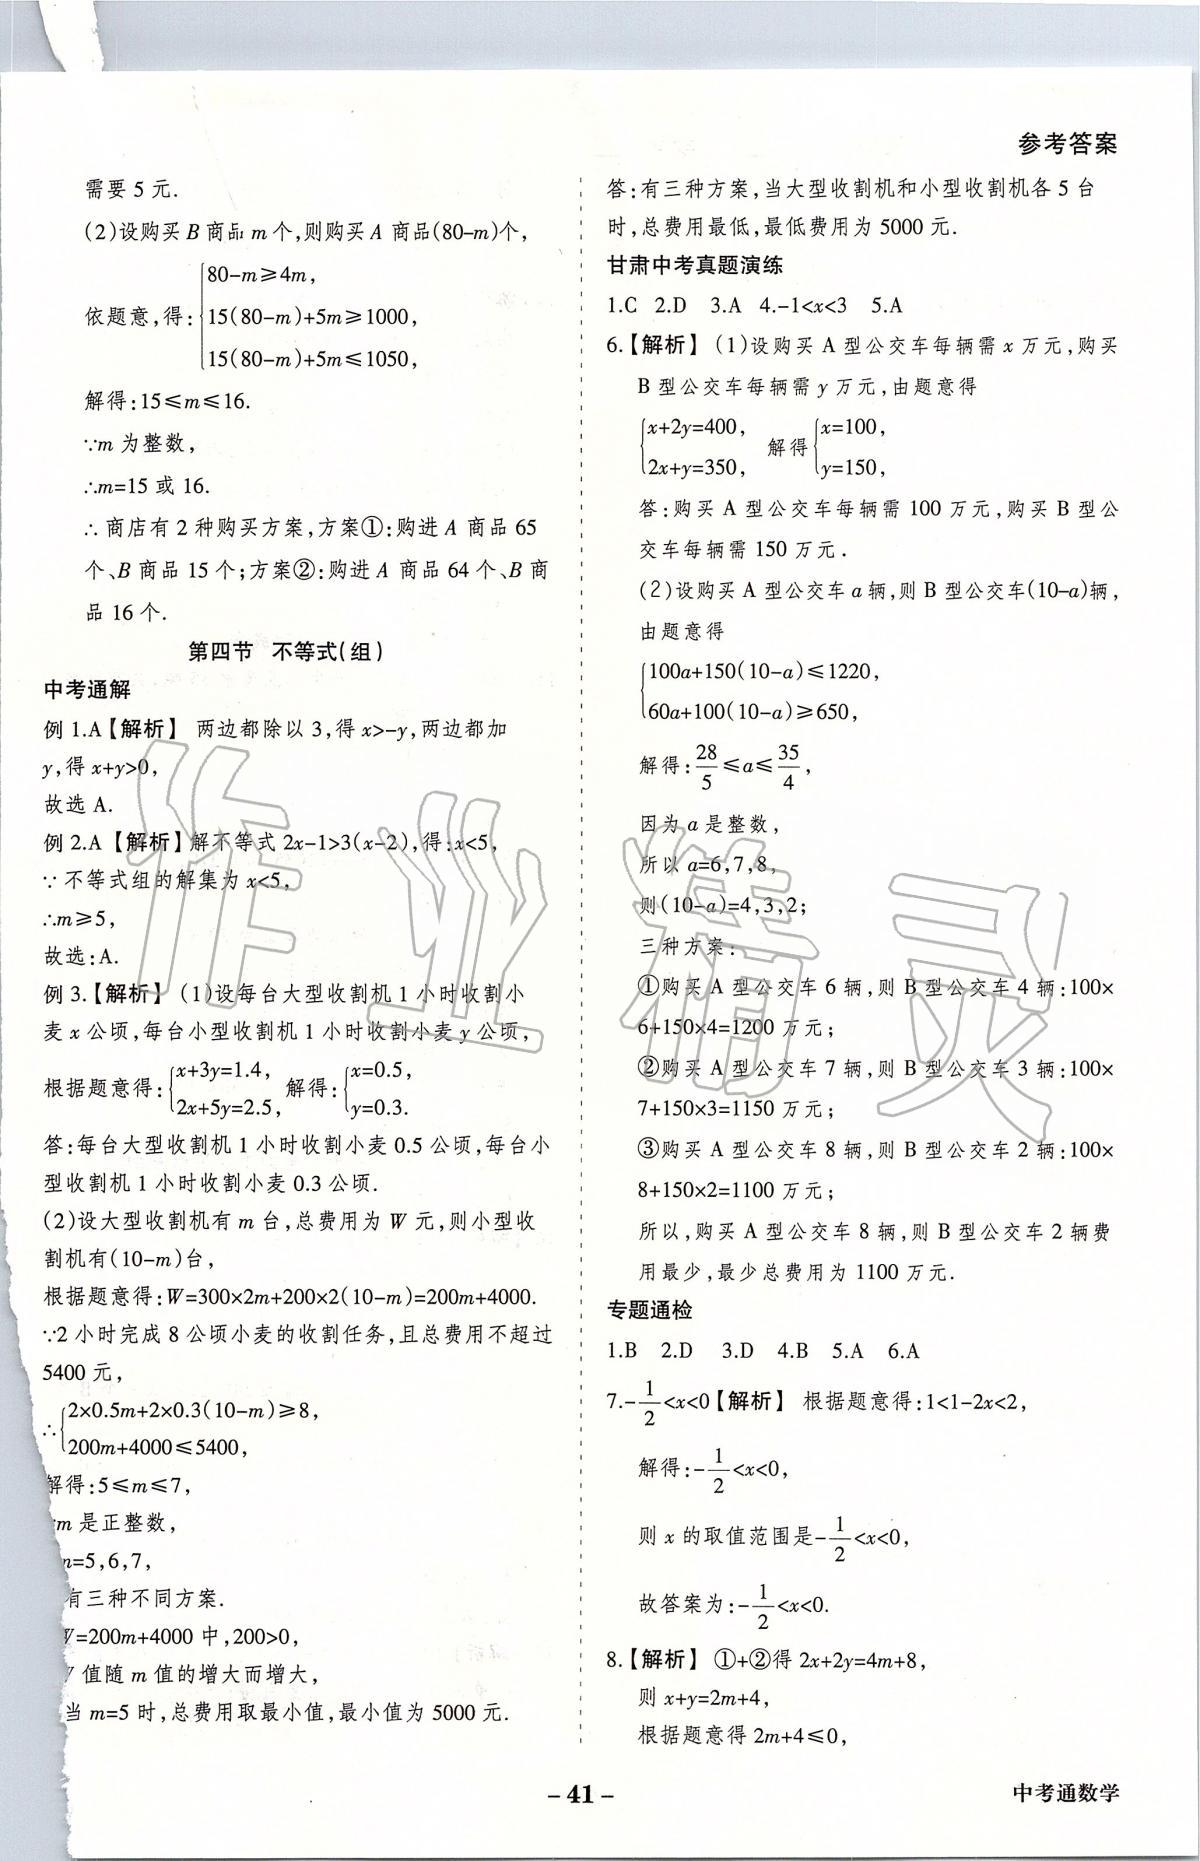 参考答案
需要 5 元.
(2)设购买 B 商品 m 个,则购买 A 商品(80-m)个,
80-m≥4m,
依题意,得: 15(80-m)+5m≥1000,
15(80-m)+5m≤1050,
解得:15≤m≤16.
∵m 为整数,
∴m=15 或 16.
∴商店有 2 种购买方案,方案①:购进 A 商品 65
个、B 商品 15 个;方案②:购进 A 商品 64 个、B 商
品 16 个.
第四节 不等式(组)
中考通解
例 1.A【解析】 两边都除以 3,得 x>-y,两边都加
y,得 x+y>0,
故选 A.
例 2.A【解析】解不等式 2x-1>3(x-2),得:x<5,
∵不等式组的解集为 x<5,
∴m≥5,
故选:A.
例 3.【解析】 (1)设每台大型收割机 1 小时收割小
麦 x 公顷,每台小型收割机 1 小时收割小麦 y 公顷,
根据题意得: x+3y=1.4, 2x+5y=2.5, 解得: x=0.5, y=0.3.
答:每台大型收割机 1 小时收割小麦 0.5 公顷,每台小
型收割机 1 小时收割小麦 0.3 公顷.
(2)设大型收割机有 m 台,总费用为 W 元,则小型收
割机有(10-m)台,
根据题意得:W=300×2m+200×2(10-m)=200m+4000.
∵2 小时完成 8 公顷小麦的收割任务,且总费用不超过
5400 元,
∴ 2×0.5m+2×0.3(10-m)≥8,
200m+4000≤5400,
解得:5≤m≤7,
m 是正整数,
m=5,6,7,
有三种不同方案.
W=200m+4000 中,200>0,
值随 m 值的增大而增大,
当 m=5 时,总费用取最小值,最小值为 5000 元.
答:有三种方案,当大型收割机和小型收割机各 5 台
时,总费用最低,最低费用为 5000 元.
甘肃中考真题演练
1.C 2.D 3.A 4.-1<x<3 5.A
6.【解析】 (1)设购买 A 型公交车每辆需 x 万元,购买
B 型公交车每辆需 y 万元,由题意得
x+2y=400, 2x+y=350, 解得 x=100, y=150,
答:购买 A 型公交车每辆需 100 万元,购买 B 型公
交车每辆需 150 万元.
(2)设购买 A 型公交车 a 辆,则 B 型公交车(10-a)辆,
由题意得
100a+150(10-a)≤1220,
60a+100(10-a)≥650,
解得:28/5≤a≤35/4,
因为 a 是整数,
所以 a=6,7,8,
则(10-a)=4,3,2;
三种方案:
①购买 A 型公交车 6 辆,则 B 型公交车 4 辆:100×
6+150×4=1200 万元;
②购买 A 型公交车 7 辆,则 B 型公交车 3 辆:100×
7+150×3=1150 万元;
③购买 A 型公交车 8 辆,则 B 型公交车 2 辆:100×
8+150×2=1100 万元;
所以,购买 A 型公交车 8 辆,则 B 型公交车 2 辆费
用最少,最少总费用为 1100 万元.
专题通检
1.B 2.D 3.D 4.B 5.A 6.A
7.-1/2<x<0【解析】 根据题意得:1<1-2x<2,
解得:-1/2<x<0,
则 x 的取值范围是-1/2<x<0,
故答案为:-1/2<x<0.
8.【解析】 ①+②得 2x+2y=4m+8,
则 x+y=2m+4,
根据题意得 2m+4≤0,
- 41 -
中考通数学
作业精灵